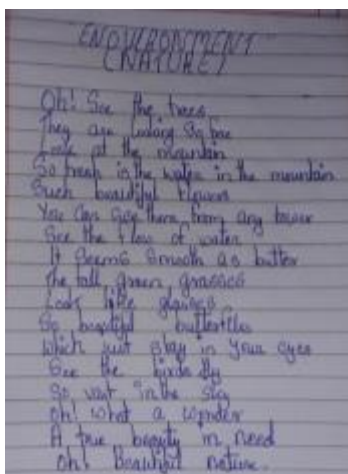 "ENDVERONTMENT"
(NATURE)
Oh! See the trees
They are looking so fine
Look at the mountain
So fresh is the water in the mountain
Such beautiful flowers
You can see them from any tower
See the flow of water
It seems smooth as butter
The tall green grasses
Look like glasses
So beautiful butterflies
Which just stay in your eyes
See the birds fly
So vast in the sky
Oh! What a wonder
A true beauty in need
Oh! Beautiful nature.